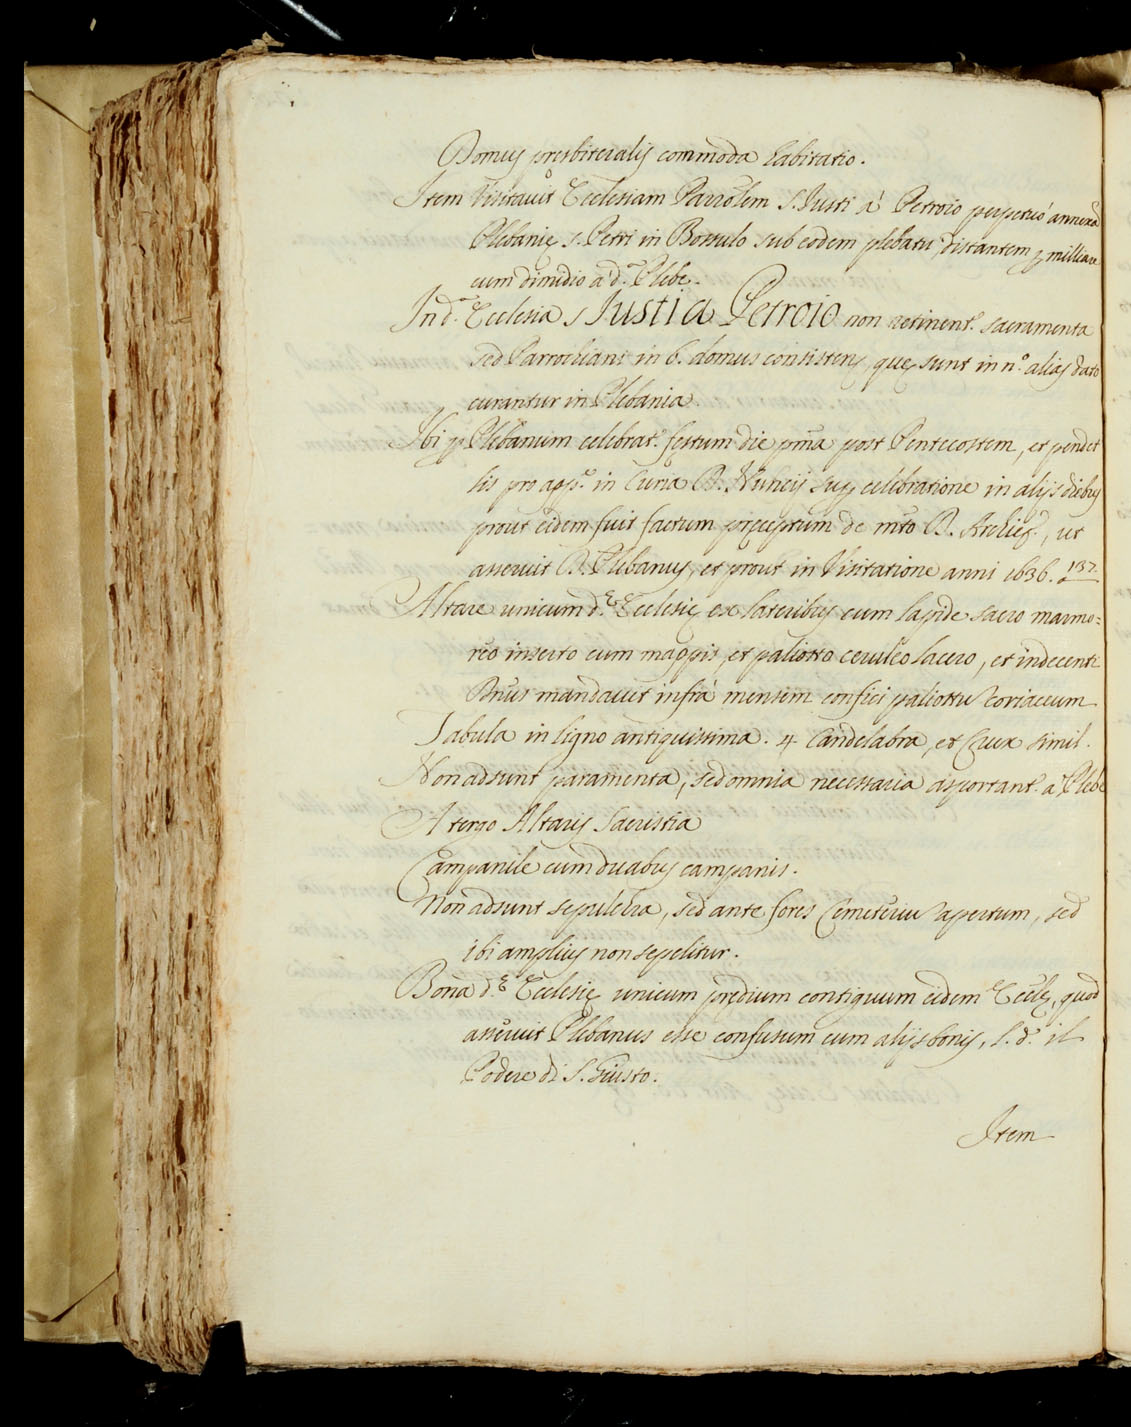 Domus presbiteralis commoda habitatio.
Item Visitavit Ecclesiam Parrolem S. Iusti à Petroio perpetuò annexa
Plebanie s. Petri in Bossulo sub eodem plebatu, distantem p milliare
cum dimidio à d.ª Plebe.
In d.ª Ecclesia S Iusti a Petroio non retinent.r sacramenta
sed Parrochiani in 6. domus consistens, que sunt in n.º alias dato
curantur in Plebania.
Ibi p Plebanum celebrat.r festum die pma post Pentecostem, et pendet
lis pro app.e in Curia R. Nuncij sup celebratione in alijs diebus
prout eidem fuit factum preceptum de mto R. Archiep., ut
asseruit R. Plebanus, et prout in Visitatione anni 1636. a 137.
Altare unicum d.e Ecclesie ex lateribus cum lapide sacro marmo=
reo inserto cum mappis, et paliotto ceruleo lacero, et indecenti
Dnus mandavit infrà mensem confici paliottu coriaceum
Tabula in ligno antiquissima. 4 Candelabra, et Crux simil.
Non adsunt paramenta, sed omnia necessaria asportant.r a Plebe
A tergo Altaris Sacristia
Campanile cum duabus campanis.
Non adsunt sepulchra, sed ante fores Cemeteriu apertum, sed
ibi amplius non sepelitur.
Bona d.e Ecclesie unicum predium contiguum eidem Eccle, quod
asseruit Plebanus esse confusum cum alijs bonis, l. d. il
Podere di S. Giusto.
Item